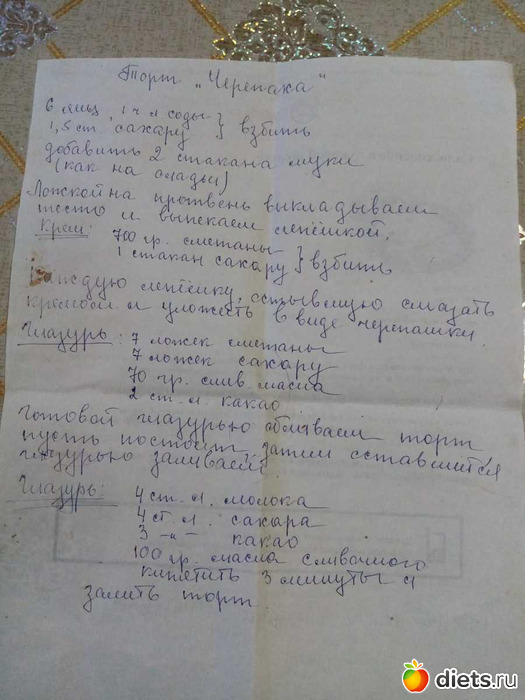 Торт „Черепаха"
6 яиц, 1 ч л соды
1,5 ст. сахару } взбить
добавить 2 стакана муки
(как на оладьи)
Ложкой на протвень викладываем
тесто и выпекаем лепёшкой.
Крем: 700 гр. сметаны
1 стакан сахару } взбить
Каждую лепёшку, остывшую смазать
кремом и уложесть в виде черепашки.
Глазурь: 7 ложек сметаны
7 ложек сахару
70 гр. слив. масла
2 ст. л. какао
Готовой глазурью обливаем торт
пусть постоит, затем оставшийся
глазурью заливаем.
Глазурь: 4 ст. л. молока
4 ст. л. сахара
3 -"- какао
100 гр. масла сливочного
кипетить 3 минуты и
залить торт
diets.ru